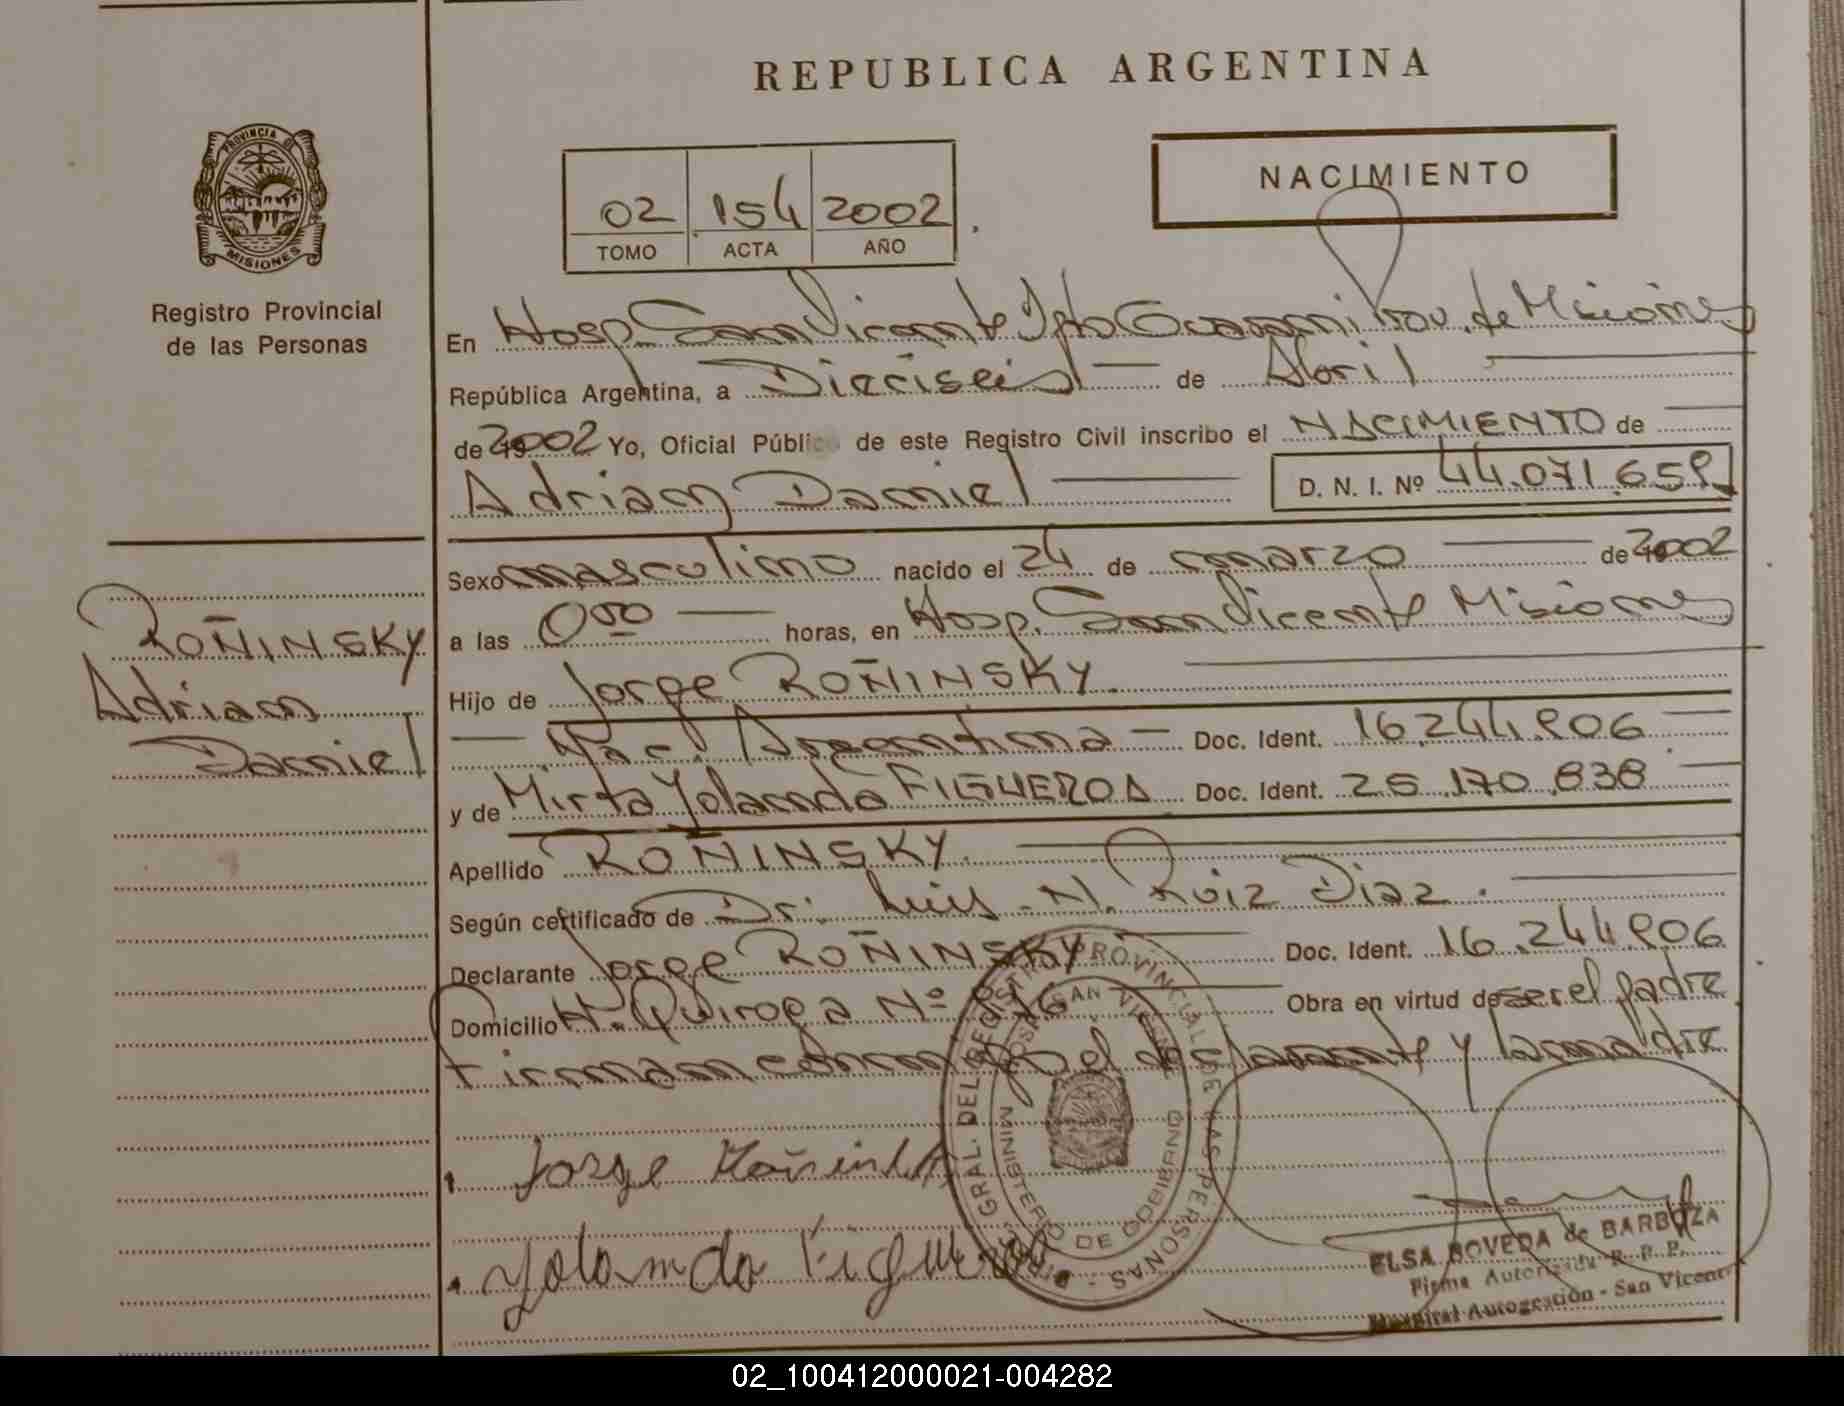 REPUBLICA ARGENTINA
PROVINCIA DE
MISIONES
Registro Provincial
de las Personas
02 154 2002
TOMO ACTA AÑO
NACIMIENTO
En Hosp. San Vicente Dpto Guarani Prov. de Misiones
República Argentina, a Dieciseis de Abril
de 2002 Yo, Oficial Público de este Registro Civil inscribo el NACIMIENTO de
Adrian Daniel D. N. I. Nº 44.071.659
Sexo masculino nacido el 24 de marzo de 2002
a las 0:00 horas, en Hosp. San Vicente Misiones
Hijo de Jorge ROÑINSKY.
Nac. Argentina Doc. Ident. 16.244.906
y de Mirta Yolanda FIGUEROA Doc. Ident. 25.170.838
Apellido ROÑINSKY.
Según certificado de Dr. Luis N. Ruiz Diaz.
Declarante Jorge ROÑINSKY Doc. Ident. 16.244.906
Domicilio H. Quiroga Nº 76 Obra en virtud de ser el padre
Firman conmigo el declarante y la madre
ROÑINSKY
Adrian
Daniel
Jorge Roñinsky
Yolanda Figueroa
DIR. GRAL. DEL REGISTRO PROVINCIAL DE LAS PERSONAS -
HOSP. SAN VICENTE
MINISTERIO DE GOBIERNO
ELSA BOVEDA de BARBOZA
Firma Autorizada R. P. P.
Hospital Autogestión - San Vicente
02_100412000021-004282